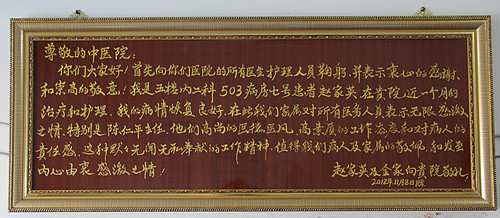 尊敬的中医院：
你们大家好！首先向你们医院的所有医生护理人员鞠躬，并表示衷心的感谢，
和崇高的敬意！我是五楼内二科503病房七号患者赵家英在贵院近一个月的
治疗和护理，我的病情恢复良好。在此我们家属对所有医务人员表示无限感激
之情，特别是陈小平主任，他们高尚的医德医风，高素质的工作态度和对病人的
责任感，这种默默无闻无私奉献的工作精神，值得我们病人及家属的敬佩和发至
内心由衷感激之情！
赵家英及全家向贵院敬礼
2012年11月8日